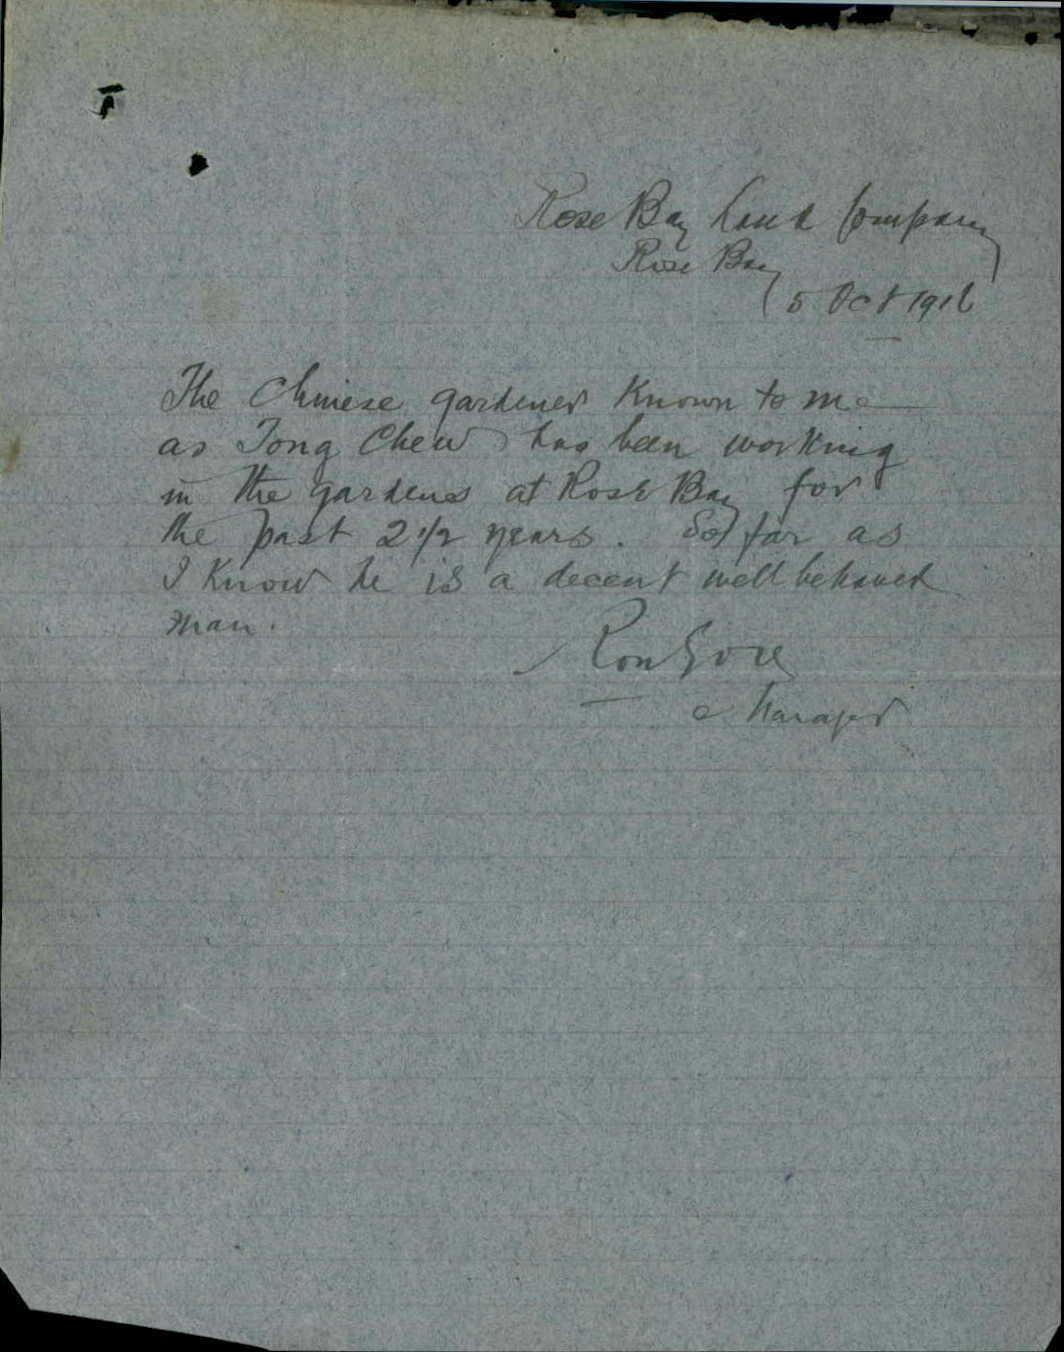 Rose Bay Land Company
Rose Bay
5 Oct 1916
The Chinese gardener Known to me
as Tong Chew has been working
in the gardens at Rose Bay for
the past 2 1/2 years. So far as
I Know he is a decent well behaved
man.
Ron Gore
Manager